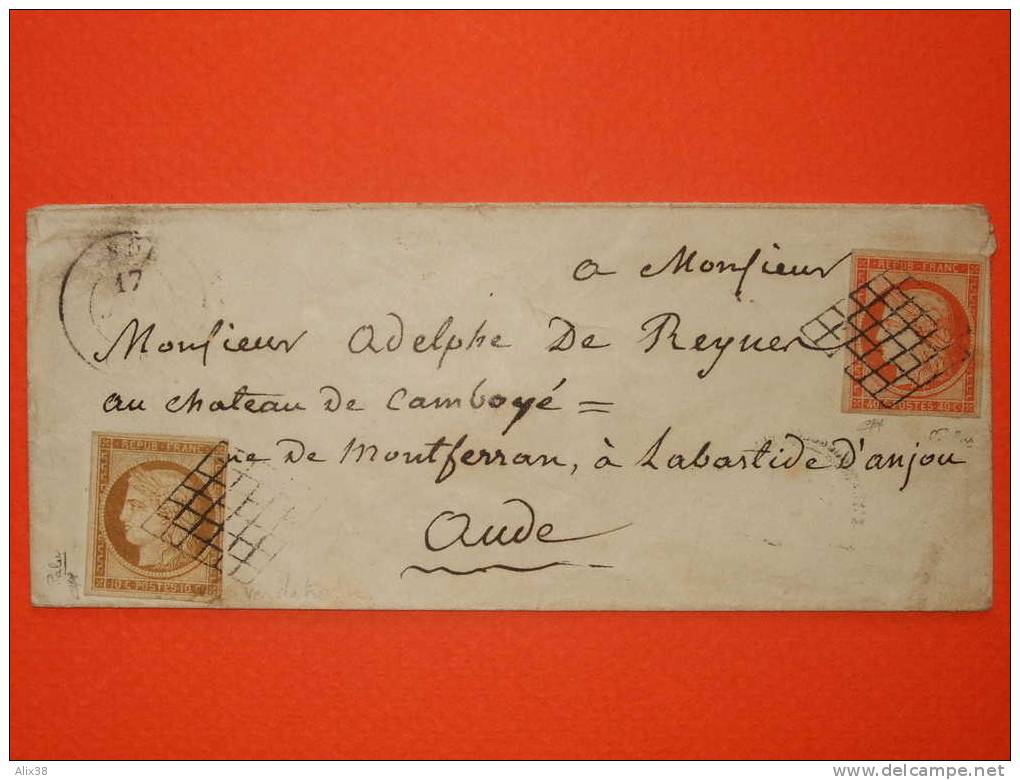 17
a Monsieur
REPUB·FRANC
Monsieur Adelphe De Reyner
au chateau de Camboyé =
REPUB·FRANC
40 C·POSTES·40 C
de Montferran, à Labastide d'anjou
Aude
10·C·POSTES·10 C
Alix38
www.delcampe.net